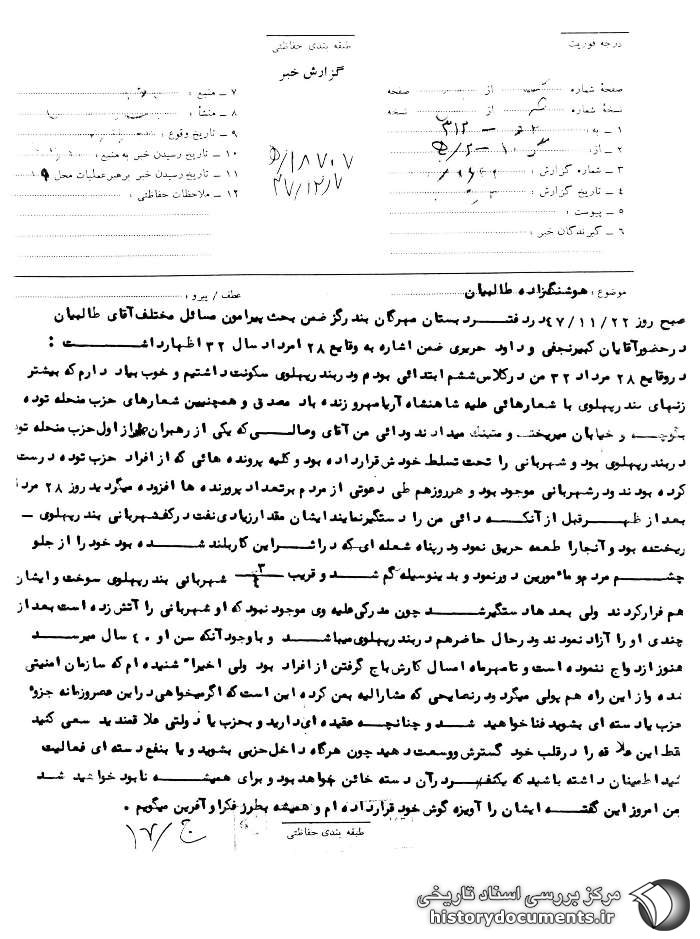 درجه فوریت
طبقه بندی حفاظتی
گزارش خبر
صفحهٔ شماره از صفحه
نسخهٔ شماره از نسخه
۱ ـ به : ۳۱۲
۲ ـ از:
۳ ـ شماره گزارش :
۴ ـ تاریخ گزارش :
۵ ـ پیوست :
۶ ـ گیرندگان خبر :
۱۸۷۰۷/
۴۷/۱۲/۷
۷ ـ منبع :
۸ ـ منشأ :
۹ ـ تاریخ وقوع :
۱۰ ـ تاریخ رسیدن خبر به منبع :
۱۱ ـ تاریخ رسیدن خبر برهبر عملیات محل
۱۲ ـ ملاحظات حفاظتی :
موضوع : هوشنگزاده طالبیان عطف / پیرو :
صبح روز ۴۷/۱۱/۲۲ در دفتر دبستان مهرگان بندرگز ضمن بحث پیرامون مسائل مختلف آقای طالبیان
در حضور آقایان کبیرنجفی و داود حریری ضمن اشاره به وقایع ۲۸ امرداد سال ۳۲ اظهار داشت :
در وقایع ۲۸ مرداد ۳۲ من در کلاس ششم ابتدائی بودم و در بندر پهلوی سکونت داشتیم و خوب بیاد دارم که بیشتر
زنهای بندر پهلوی با شعارهائی علیه شاهنشاه آریامهر و زنده باد مصدق و همچنین شعارهای حزب منحله توده
بکوچه و خیابان میریختند و میتینگ میدادند و دائی من آقای وصالی که یکی از رهبران طراز اول حزب منحله توده
در بندر پهلوی بود و شهربانی را تحت تسلط خودش قرار داده بود و کلیه پرونده هائی که از افراد حزب توده درست
کرده بودند و در شهربانی موجود بود و هر روز هم طی دعوتی از مردم بر تعداد پرونده ها افزوده میگردید روز ۲۸ مرداد
بعد از ظهر قبل از آنکه دائی من را دستگیر نمایند ایشان مقدار زیادی نفت در کف شهربانی بندر پهلوی ـ
ریخته بود و آنجا را طعمه حریق نمود و در پناه شعله ای که در اثر این کار بلند شده بود خود را از جلو
چشم مردم و مأمورین دور نمود و بدینوسیله گم شد و قریب ۳/۴ شهربانی بندر پهلوی سوخت و ایشان
هم فرار کردند ولی بعدها دستگیر شد چون مدرکی علیه وی موجود نبود که او شهربانی را آتش زده است بعد از
چندی او را آزاد نمودند و در حال حاضر هم در بندر پهلوی میباشد و با وجود آنکه سن او ۴۰ سال میرسد
هنوز ازدواج ننموده است و تا مهرماه امسال کارش باج گرفتن از افراد بود ولی اخیراً شنیده ام که سازمان امنیتی
شده و از این راه هم پولی میگرد و در نصایحی که مشارالیه بمن کرده این است که اگر میخواهی در این عصر و زمانه جزو
حزب یا دسته ای بشوید فنا خواهید شد و چنانچه عقیده ای دارید و بحزب یا دولتی علاقمندید سعی کنید
فقط این علاقه را در قلب خود گسترش و وسعت دهید چون هر گاه داخل حزبی بشوید و یا بنفع دسته ای فعالیت
کنید اطمینان داشته باشید که یکنفر در آن دسته خائن خواهد بود و برای همیشه نابود خواهید شد
من امروز این گفته ایشان را آویزه گوش خود قرار داده ام و همیشه بطرز فکر او آفرین میگویم .
طبقه بندی حفاظتی
۱۷/ج
مرکز بررسی اسناد تاریخی
historydocuments.ir